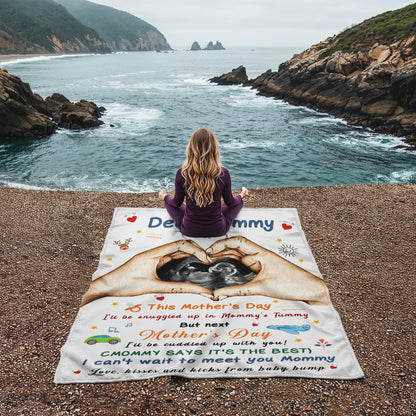 This Mother's Day
I'll be snuggled up in Mommy's Tummy
But next
Mother's Day
I'll be cuddled up with you!
(MOMMY SAYS IT'S THE BEST)
I can't wait to meet you Mommy
Love, kisses and kicks from baby bump